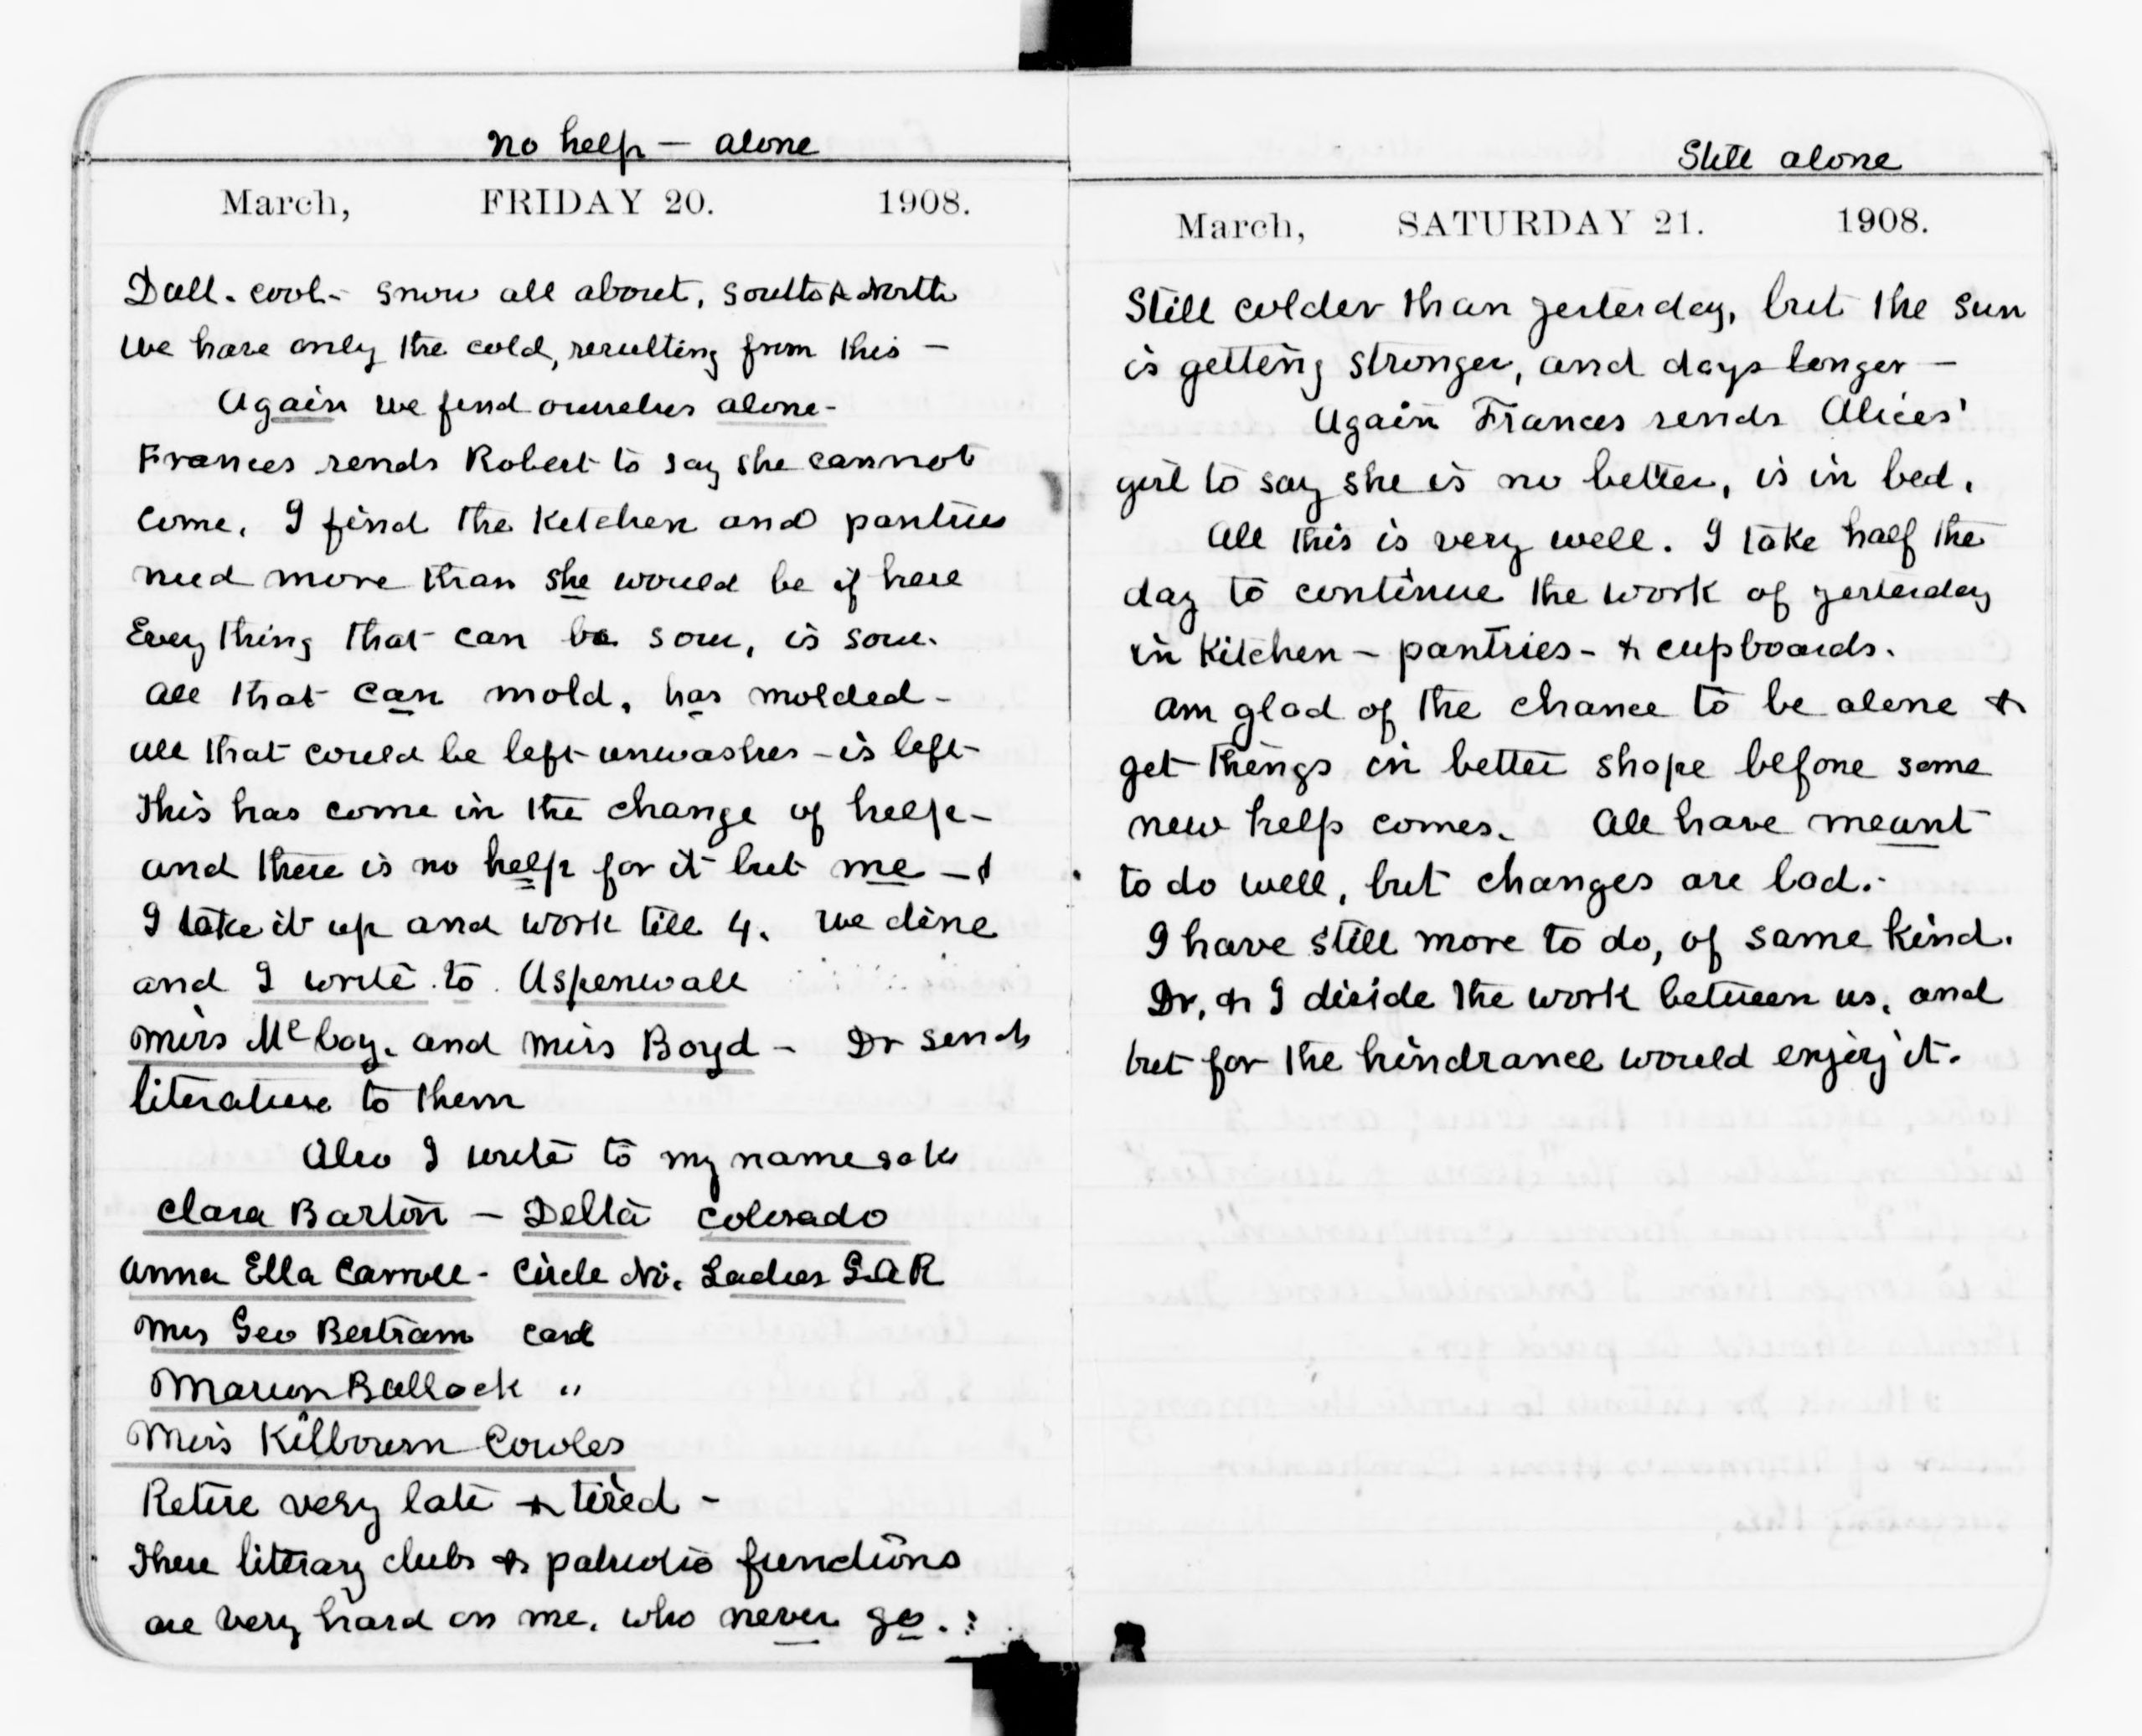 No help — alone
March, FRIDAY 20. 1908.
Dull. cool - snow all about, South & North
We have only the cold, resulting from this —
Again we find ourselves alone -
Frances sends Robert to say she cannot
come. I find the Kitchen and pantries
need more than she would be if here
Every thing that can be sour, is sour.
all that can mold, has molded -
all that could be left unwashes - is left
This has come in the change of help -
and there is no help for it but me - &
I take it up and work till 4. We dine
and I write to Aspenwall
Miss McCoy. and Miss Boyd - Dr sends
literature to them
Also I write to my namesake
Clara Barton — Delta Colorado
Anna Ella Carroll - Circle No. Ladies G.A.R
Mrs Geo Bertram card
Marion Bullock "
Miss Kilbourn Cowles
Retire very late & tired -
These literary clubs & patriotic functions
are very hard on me. who never go. :
Still alone
March, SATURDAY 21. 1908.
Still colder than yesterday, but the sun
is getting stronger, and days longer —
Again Frances sends Alices'
girl to say she is no better, is in bed.
All this is very well. I take half the
day to continue the work of yesterday
in Kitchen - pantries - & cupboards.
Am glad of the chance to be alone &
get things in better shape before some
new help comes. All have meant
to do well, but changes are bad. -
I have still more to do, of same kind.
Dr. & I divide the work between us. and
but for the hindrance would enjoy it.